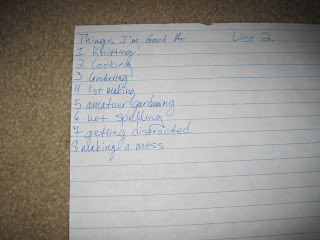 Things I'm Good At List 2
1 Knitting!
2 Cooking
3 Crocheting
4 list making
5 amatuer gardening
6 not spelling
7 getting distracted
8 making a mess